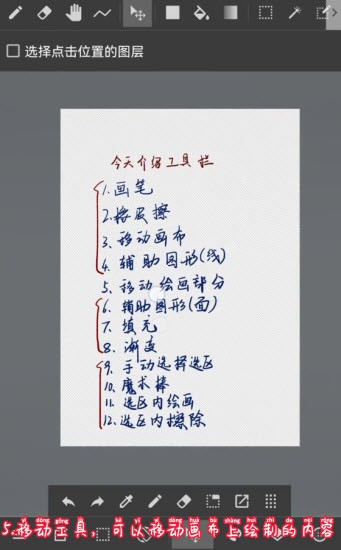 选择点击位置的图层
今天介绍工具栏
1.画笔
2.橡皮擦
3.移动画布
4.辅助图形(线)
5.移动绘画部分
6.辅助图形(面)
7.填充
8.渐变
9.手动选择选区
10.魔术棒
11.选区内绘画
12.选区内擦除
5.移动工具，可以移动画布上绘制的内容